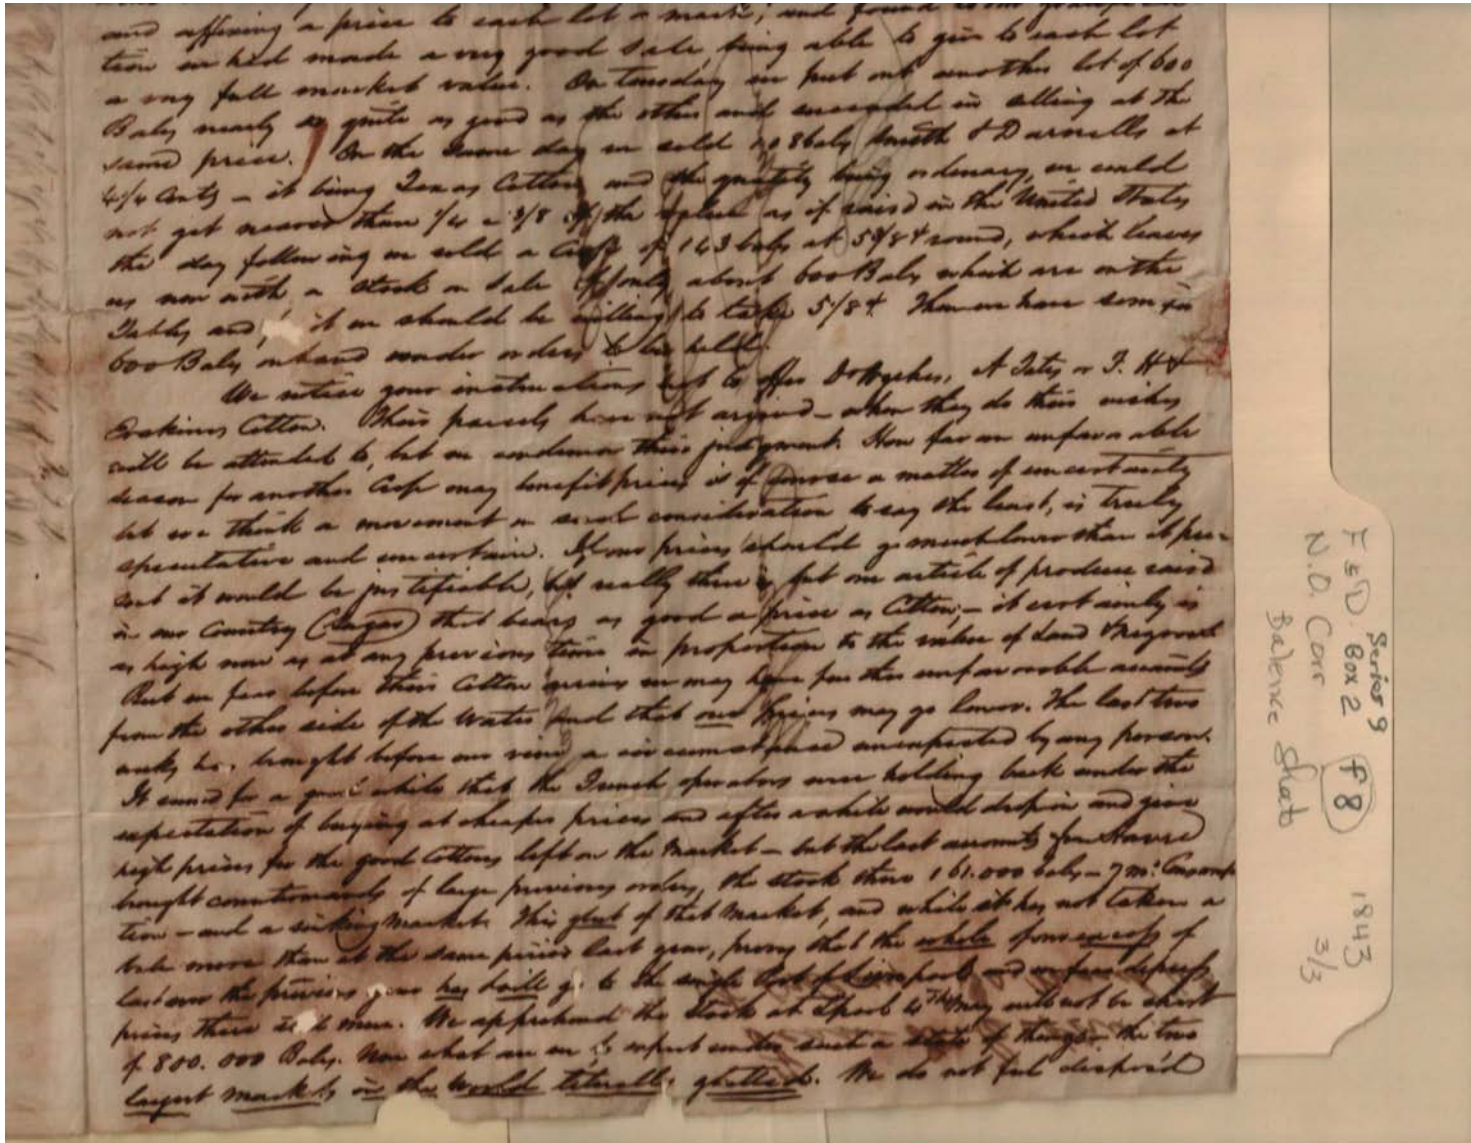 and affixing a price to each lot a mark, and found
tion we had made a very good sale, being able to give to each lot
a very full market value. On Tuesday we put out another lot of 600
Bales nearly or quite as good as the other and succeeded in selling at the
same price. On the same day we sold 108 bales Smith & Darnells at
4 1/4 Cents – it being Texas Cotton and the quality being ordinary, we could
not get nearer than 1/4 a 3/8 of the value as if raised in the United States
the day following we sold a Crop of 143 bales at 5 5/8 ¢ round, which leaves
us now with a stock on sale of only about 600 Bales which are on the
Tables and it we should be willing to take 5/8 ¢. Then we have some
600 Bales on hand under orders to be held.
We notice your instructions not to offer A Tates or F. H &
Erskines Cotton. Their parcels have not arrived – when they do their wishes
will be attended to, but we condemn their judgment. How far an unfavorable
season for another Crop may benefit prices is of course a matter of uncertainty
but we think a movement on such consideration to say the least, is truly
speculative and uncertain. If our prices should go much lower than at pre-
sent it would be justifiable, but really there is but one article of produce raised
in our Country (Sugar) that bears as good a price as Cotton; – it certainly is
as high now as at any previous time in proportion to the value of Land & Negroes
But we fear before their Cotton arrives we may have further unfavorable accounts
from the other side of the Water and that our prices may go lower. The last two
weeks has brought before our view a circumstance unexpected by any person.
It seemed for a great while that the French operators were holding back under the
expectation of buying at cheaper prices and after a while would drop in and give
high prices for the good Cottons left on the Market – but the last accounts from Havre
brought countermands of large previous orders, the stock there 161.000 bales – 7 ms: Consump
tion – and a sinking market. This glut of that Market, and while it has not taken a
bale more than at the same period last year, proves that the whole excess of
last over the previous year has to go to the single Port of Liverpool and we fear depress
prices there still more. We apprehend the Stock at Lpool 4th May will not be short
of 800.000 Bales. Now what are we to expect under such a state of things – the two
largest markets in the World literally glutted. We do not feel disposed
Series 9
F & D. Box 2 f8 1843
N.O. Corr 3/3
Balence Shat